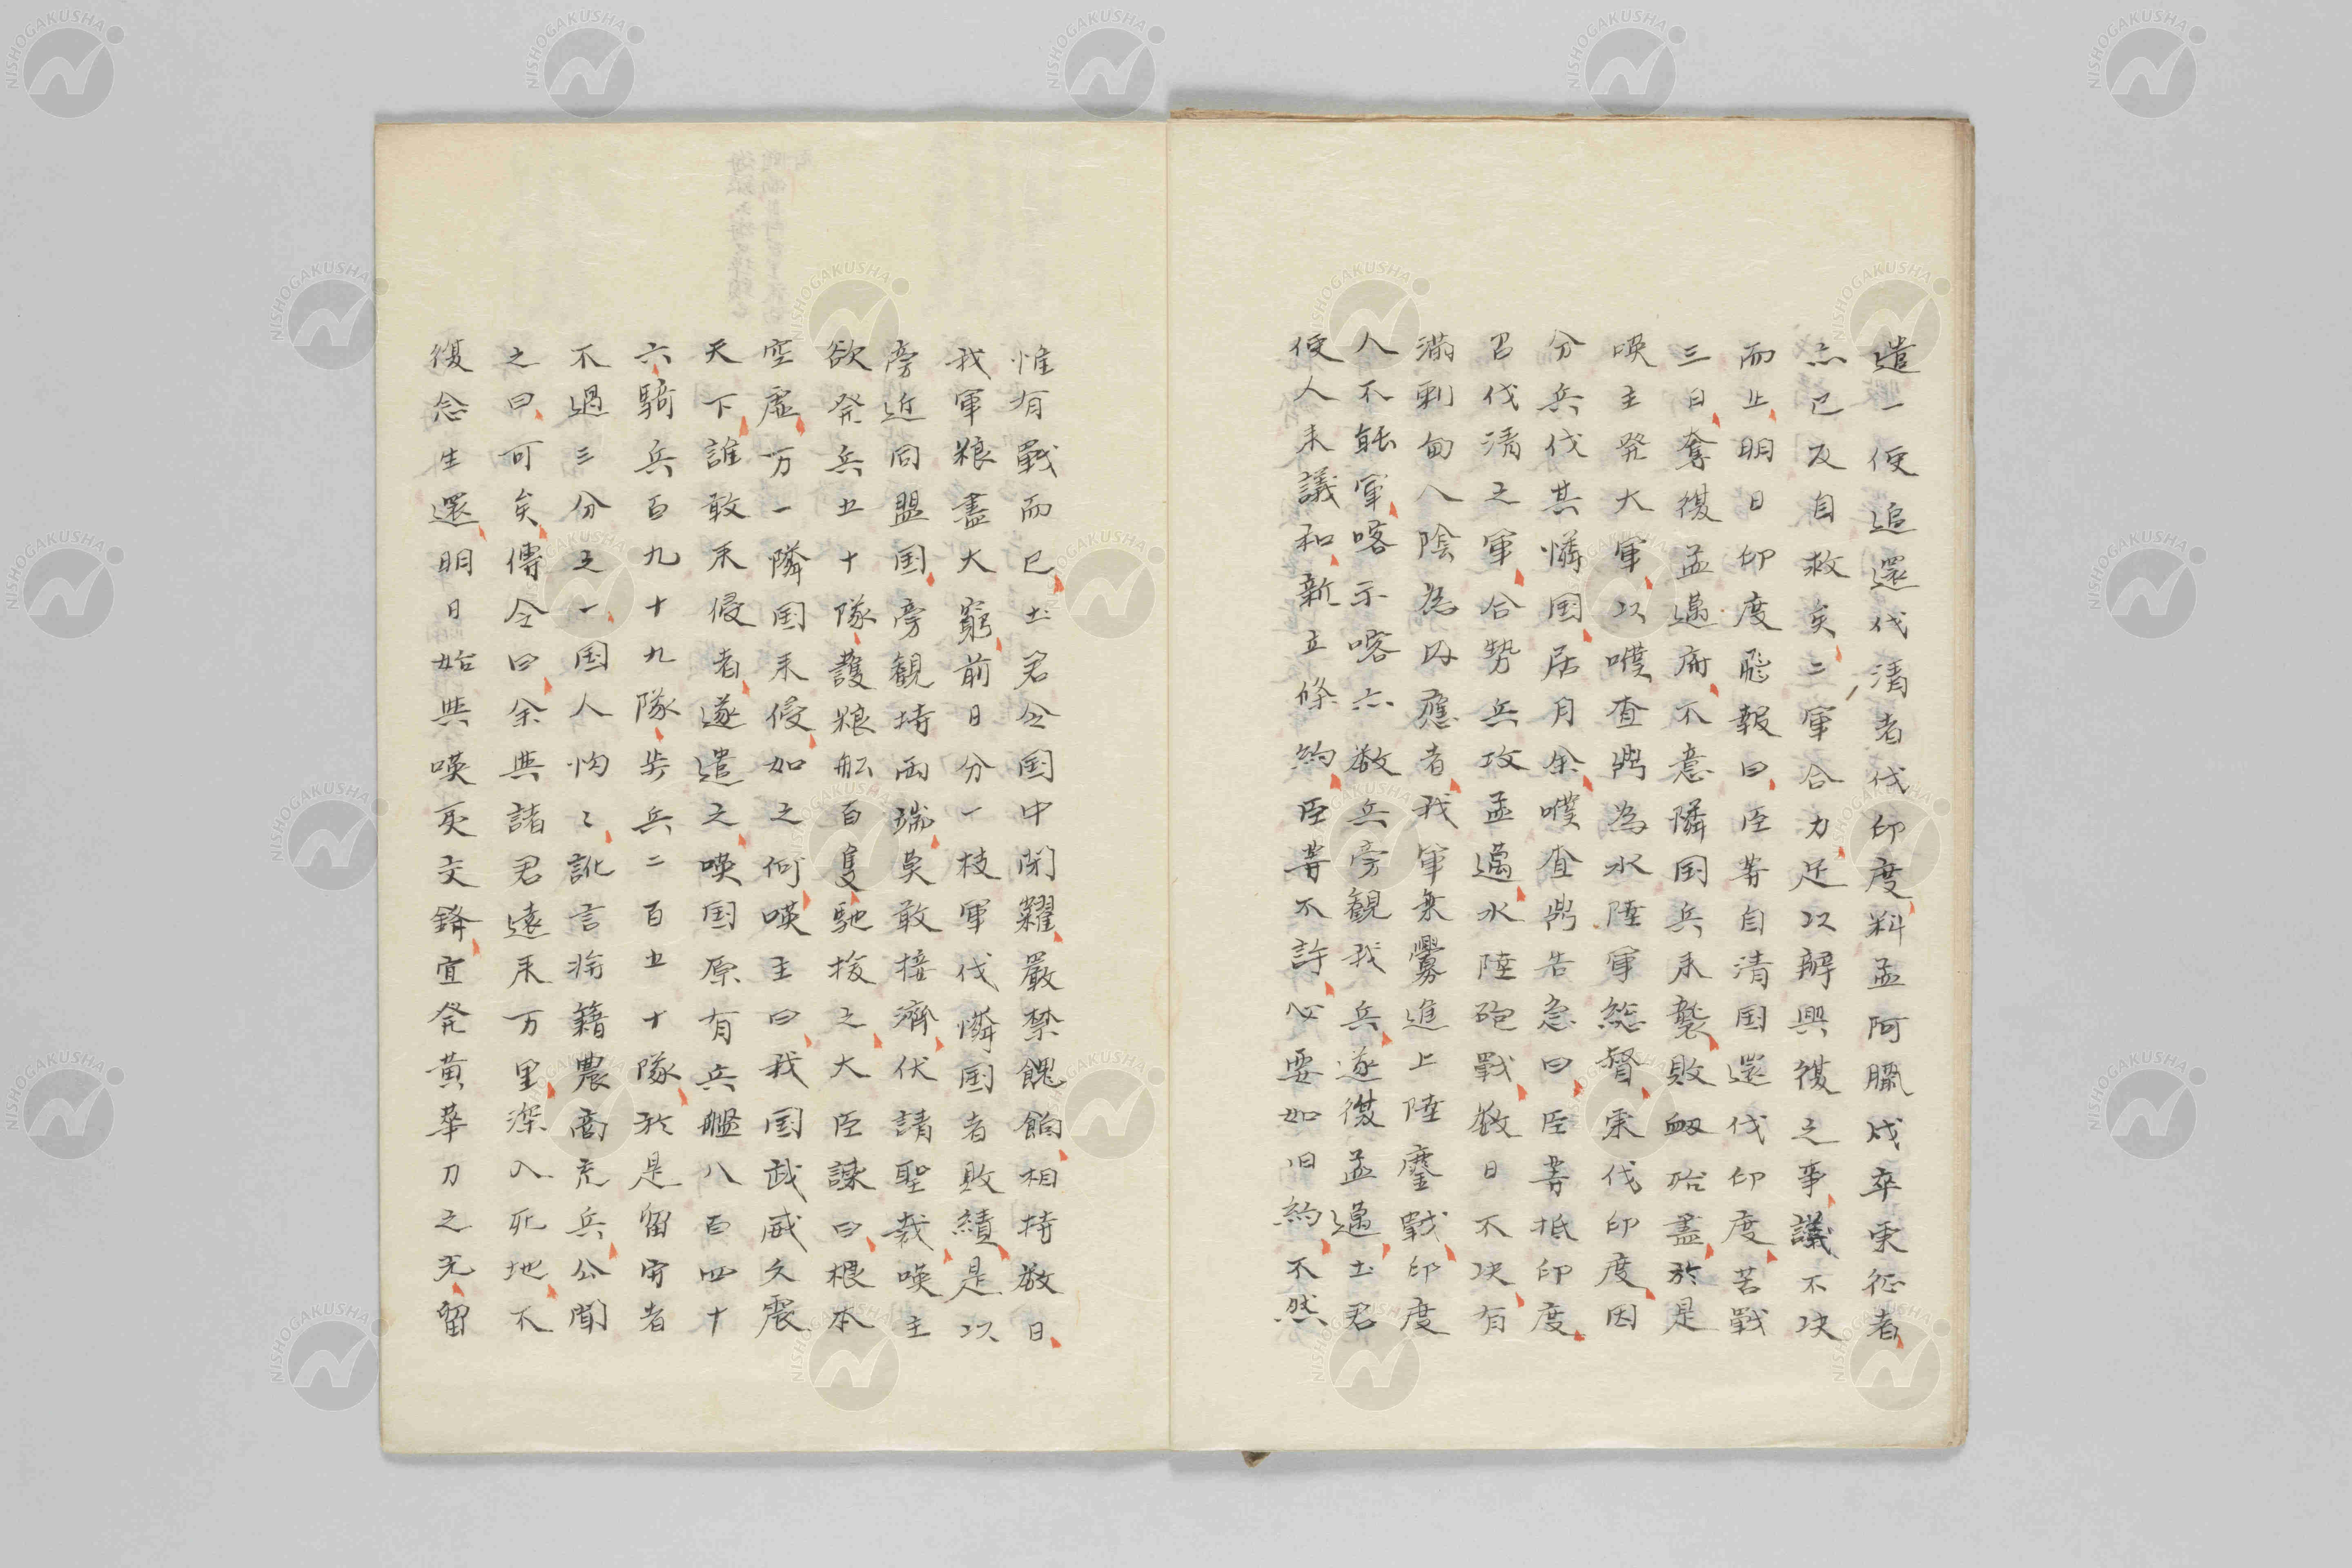 遣一使追還伐清者伐印度料孟阿臘戍卒東征者
亦已及自救矣二軍合力足以辨興復之事議不决
而止明日印度飛報曰臣等自清国還伐印度苦戰
三日奪復孟邁府不意隣国兵来襲敗衂殆盡於是
嘆主発大軍以噗查鼎為水陸軍総督東伐印度因
分兵伐其憐国居月余噗查鼎告急曰臣等抵印度
召伐清之軍合勢兵攻孟邁水陸砲戰数日不决有
滿剌甸八陰為内應者我軍乗釁進上陸鏖戰印度
人不能軍喀示喀亦敵兵旁観我兵遂復孟邁土君
使人来議和新立條約臣等不許心要如旧約不然
惟有戰而已土君令国中閉糶嚴禁餽餉相持数日
我軍粮盡大窮前日分一枝軍伐憐国者敗績是以
旁近同盟国旁観持両端莫敢接濟伏請聖裁嘆主
欲発兵五十隊護粮舩百隻馳援之大臣諫曰根本
空虚万一隣国来侵如之何嘆主曰我国武威久震
天下誰敢来侵者遂遣之嘆国原有兵艦八百四十
六騎兵百九十九隊歩兵二百五十隊於是留守者
不過三分之一国人恟〻訛言将籍農商充兵公聞
之曰可矣傳令曰余與諸君遠来万里深入死地不
復念生還明日始與嘆夷交鋒宜発黄華刀之光留
NISHOGAKUSHA